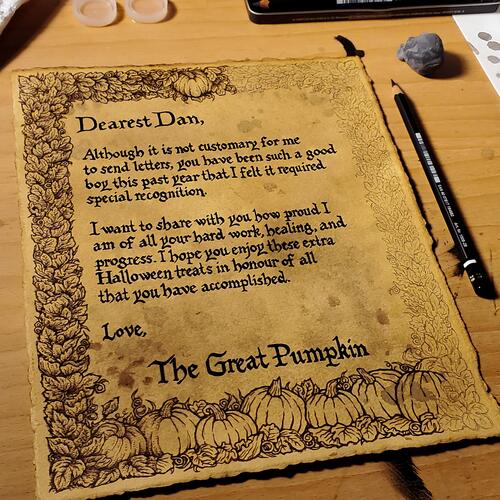 Dearest Dan,
Although it is not customary for me
to send letters, you have been such a good
boy this past year that I felt it required
special recognition.
I want to share with you how proud I
am of all your hard work, healing, and
progress. I hope you enjoy these extra
Halloween treats in honour of all
that you have accomplished.
Love,
The Great Pumpkin